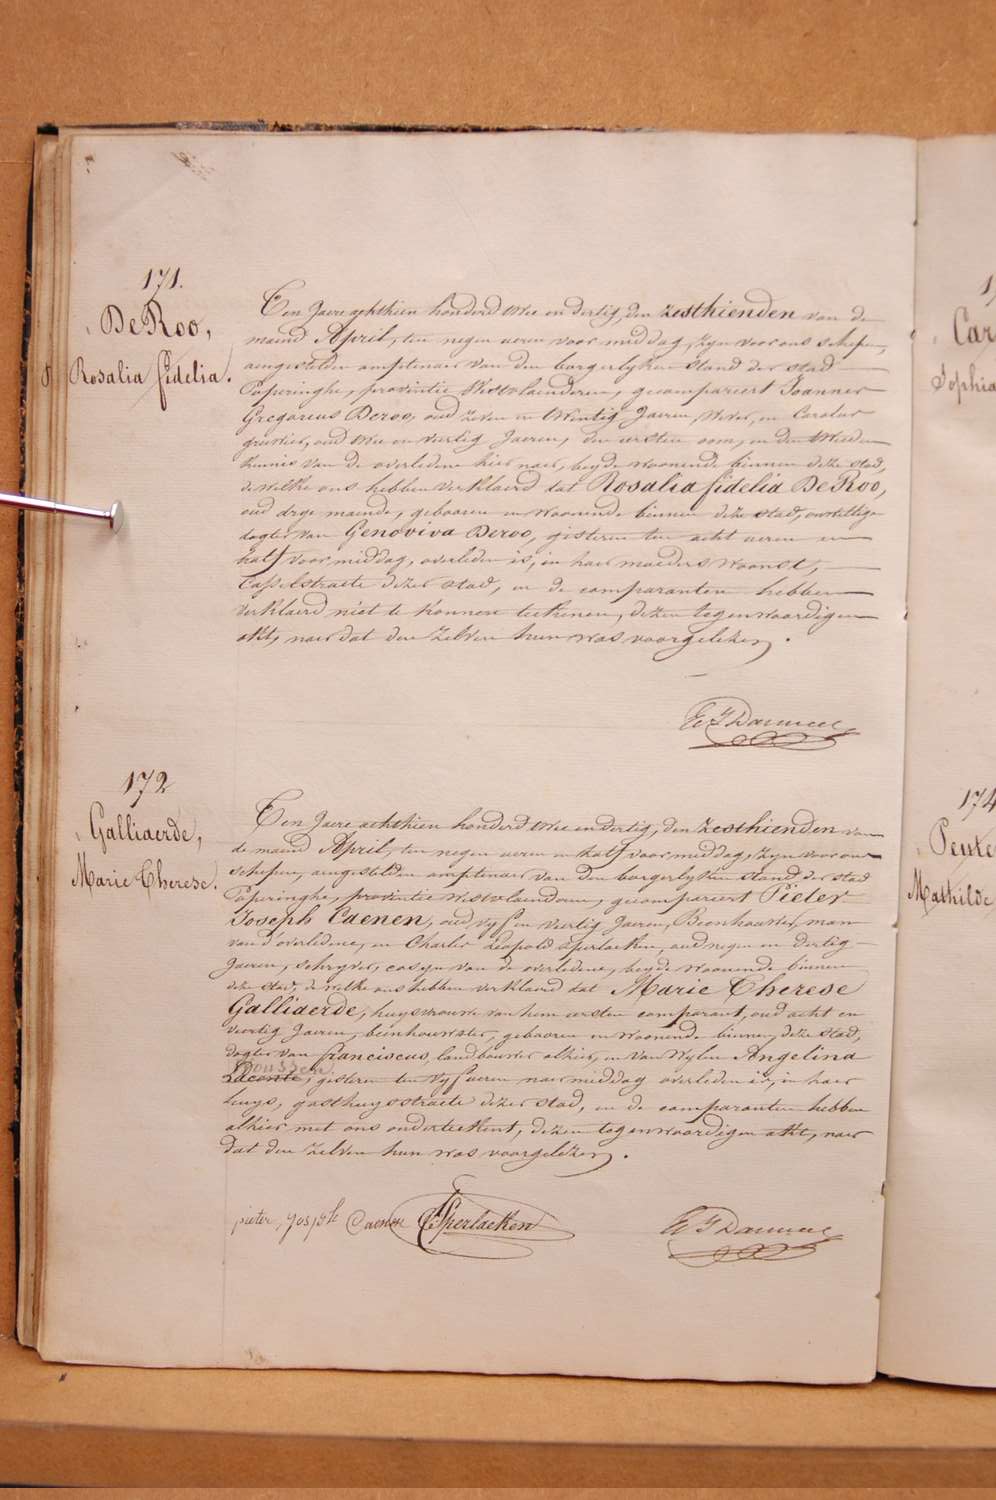 171.
De Roo,
Rosalia fidelia.
Ten Jaere achthien honderd twee en dertig, den zesthienden van de
maend April, ten negen ueren voor middag, zyn voor ons schepen,
aengestelden amptenaer van den borgerlyken stand der stad
Poperinghe, provintie Westvlaenderen, gecompareert Joannes
Gregorius Deroo, oud zeven en twintig Jaeren, wever, en Carolus
oud twee en viertig Jaeren, den eersten oom, en den tweeden
kennis van de overledene hier naer, beyde woonende binnen deze stad,
de welke ons hebben verklaerd dat Rosalia fidelia De Roo,
oud drye maenden, gebooren en woonende binnen deze stad, onwettige
dogter van Genoviva Deroo, gisteren ten acht ueren en
half voor middag, overleden is, in haer moeders woonst,
Casselstraete dezer stad, en de comparanten hebben
verklaerd niet te konnen teekenen, dezen tegenwoordigen
akt, naer dat den zelven hun was voorgelezen.
172
Galliaerde,
Marie Therese.
Ten Jaere achthien honderd twee en dertig, den zesthienden van
de maend April, ten negen ueren en half voor middag, zyn voor ons
schepen, aengestelden amptenaer van den borgerlyken stand der stad
Poperinghe, provintie westvlaenderen, gecompareert Pieter
Joseph Caenen, oud vyf en viertig Jaeren, Beenhouwer, man
van d'overledene, en Charles Leopold Sperlaeken, oud negen en dertig
Jaeren, schryver, cosyn van de overledene, beyde woonende binnen
deze stad, de welke ons hebben verklaerd dat Marie Therese
Galliaerde, huysvrouwe van hem eersten comparant, oud acht en
viertig Jaeren, beenhouwster, gebooren en woonende binnen deze stad,
dogter van franciscus, landbouwer alhier, en van wylen Angelina
gisteren ten vyf ueren naer middag overleden is, in haer
huys, gasthuysstraete dezer stad, en de comparanten hebben
alhier met ons onderteekent, dezen tegenwoordigen akt, naer
dat den zelven hun was voorgelezen.
pieter josph Caenen Sperlaeken
174
Mathilde
Sophia